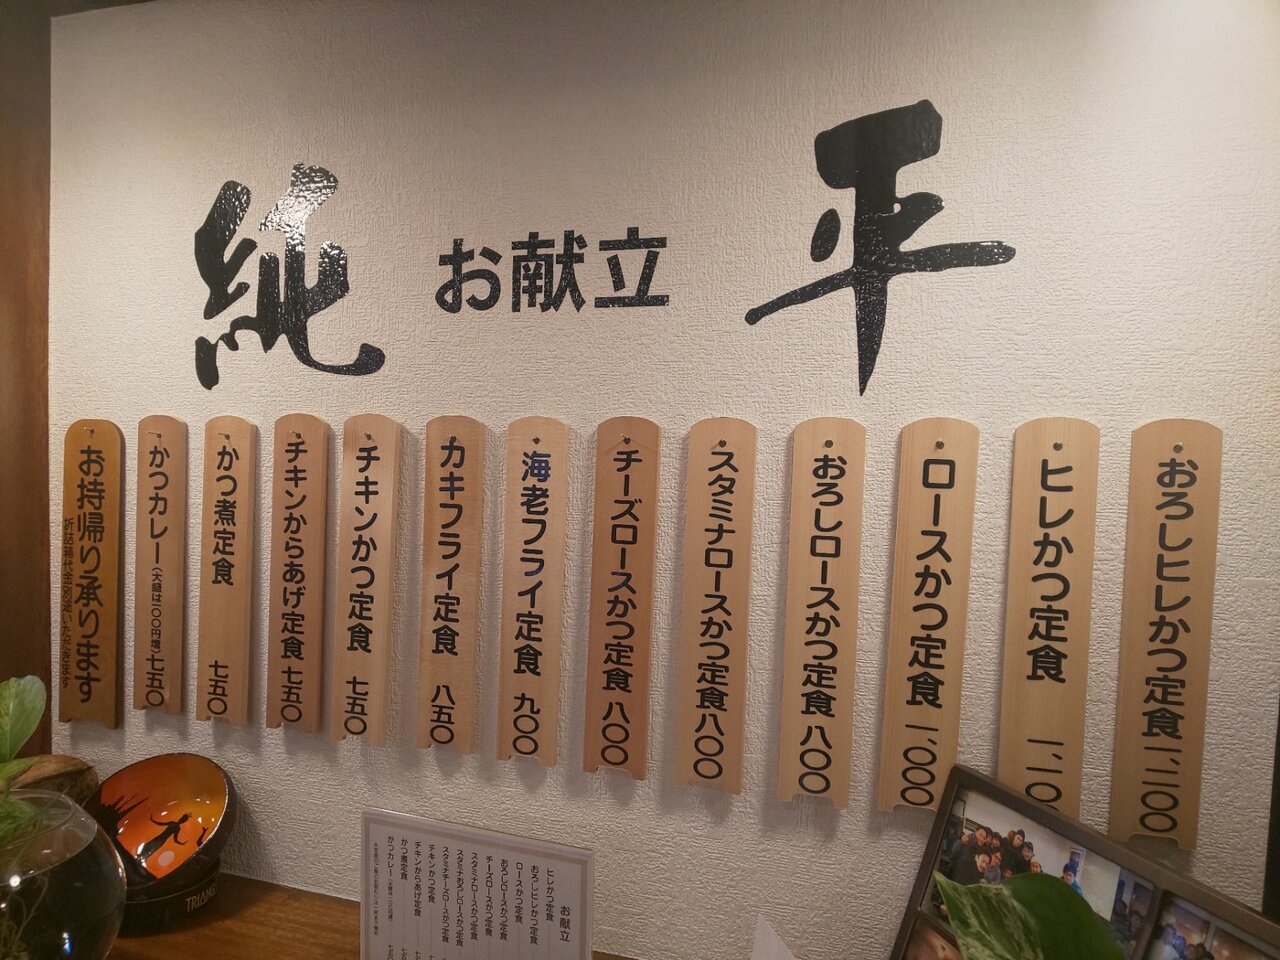 純平
お献立
おろしヒレかつ定食 一、二〇〇
ヒレかつ定食 一、一〇
ロースかつ定食 一、〇〇〇
おろしロースかつ定食 八〇〇
スタミナロースかつ定食 八〇〇
チーズロースかつ定食 八〇〇
海老フライ定食 九〇〇
カキフライ定食 八五〇
チキンかつ定食 七五〇
チキンからあげ定食 七五〇
かつ煮定食 七五〇
かつカレー(大盛は一〇〇円増) 七五〇
お持帰り承ります
折詰箱代金別途いただきます
お献立
ヒレかつ定食
おろしヒレかつ定食
ロースかつ定食
おろしロースかつ定食
チーズロースかつ定食
スタミナロースかつ定食
スタミナおろしロースかつ定食
スタミナチーズロースかつ定食
チキンかつ定食
チキンからあげ定食
かつ煮定食
かつカレー